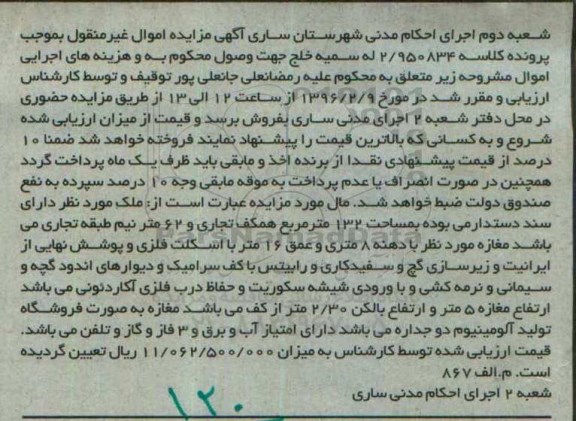 شعبه دوم اجرای احکام مدنی شهرستان ساری آگهی مزایده اموال غیرمنقول بموجب
پرونده کلاسه ۲/۹۵۰۸۳۴ له سمیه خلج جهت وصول محکوم به و هزینه های اجرایی
اموال مشروحه زیر متعلق به محکوم علیه رمضانعلی جانعلی پور توقیف و توسط کارشناس
ارزیابی و مقرر شد در مورخ ۱۳۹۶/۲/۹ از ساعت ۱۲ الی ۱۳ از طریق مزایده حضوری
در محل دفتر شعبه ۲ اجرای مدنی ساری بفروش برسد و قیمت از میزان ارزیابی شده
شروع و به کسانی که بالاترین قیمت را پیشنهاد نمایند فروخته خواهد شد ضمنا ۱۰
درصد از قیمت پیشنهادی نقدا از برنده اخذ و مابقی باید ظرف یک ماه پرداخت گردد
همچنین در صورت انصراف یا عدم پرداخت به موقه مابقی وجه ۱۰ درصد سپرده به نفع
صندوق دولت ضبط خواهد شد. مال مورد مزایده عبارت است از: ملک مورد نظر دارای
سند دستدارمی بوده بمساحت ۱۳۲ مترمربع همکف تجاری و ۶۲ متر نیم طبقه تجاری می
باشد مغازه مورد نظر با دهنه ۸ متری و عمق ۱۶ متر با اسکلت فلزی و پوشش نهایی از
ایرانیت و زیرسازی گچ و سفیدکاری و رابیتس با کف سرامیک و دیوارهای اندود گچه و
سیمانی و نرمه کشی و با ورودی شیشه سکوریت و حفاظ درب فلزی آکاردئونی می باشد
ارتفاع مغازه ۵ متر و ارتفاع بالکن ۲/۳۰ متر از کف می باشد مغازه به صورت فروشگاه
تولید آلومینیوم دو جداره می باشد دارای امتیاز آب و برق و ۳ فاز و گاز و تلفن می باشد.
قیمت ارزیابی شده توسط کارشناس به میزان ۱۱/۰۶۲/۵۰۰/۰۰۰ ریال تعیین گردیده
است. م.الف ۸۶۷
شعبه ۲ اجرای احکام مدنی ساری
۱۲۰